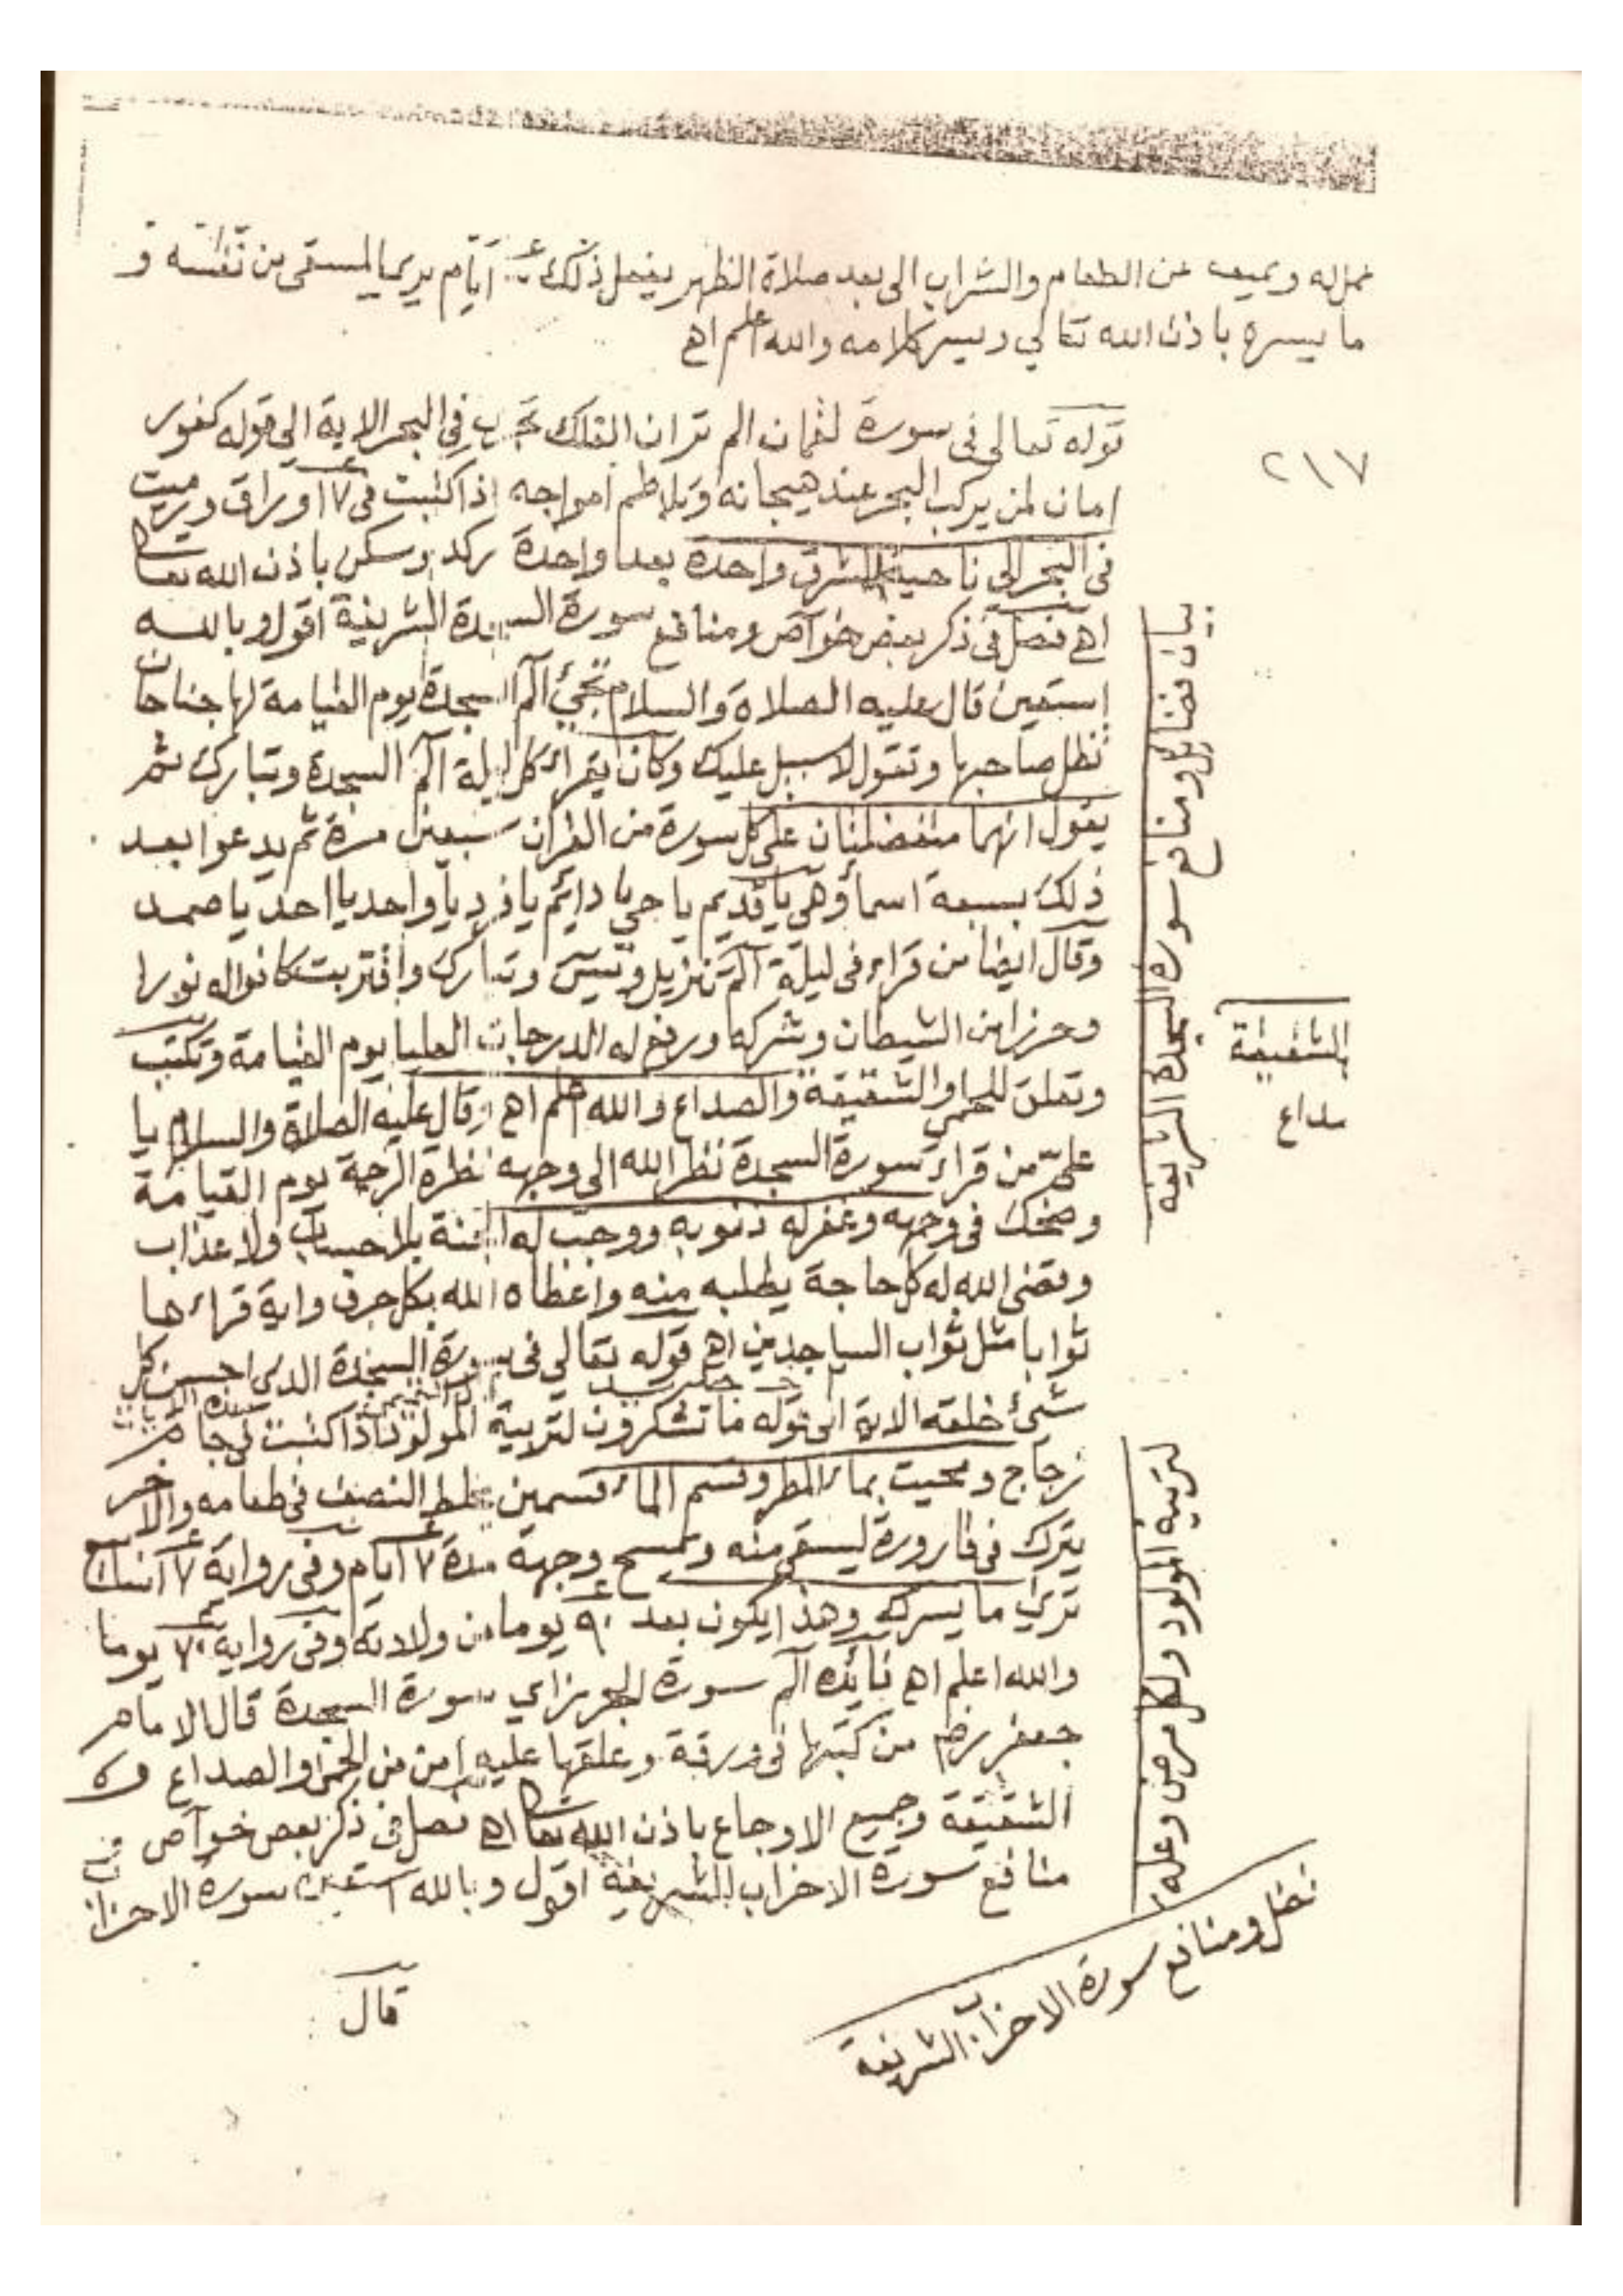 عمله ويميعه عن الطعام والشراب الى بعد صلاة الظهر يفعل ذلك ايام يرى المسقى من
ما يسره باذن الله تعالي وييسر كلامه والله اعلم اهـ
٢١٧
قوله تعالى فى سورة لقمان الم تر ان الفلك تجرى فى البحر الاية الى قوله كفور
امان لمن يركب البحر عند هيجانه وتلاطم امواجه اذا كتبت فى ٧ اوراق ورميت
فى البحر الى ناحية المشرق واحدة بعد واحدة ركد وسكن باذن الله تعا
اهـ فصل فى ذكر بعض خواص ومنافع سورة السجدة الشريفة اقول وبالله
استعين قال عليه الصلاة والسلام تجئ الٓم السجدة يوم القيامة لها جناحان
تظل صاحبها وتقول لا سبيل عليك وكان يقراء كل ليلة الٓم السجدة وتبارك ثم
يقول انهما متفضلتان على كل سورة من القران سبعين مرة ثم يدعوا بعد
ذلك بسبعة اسماء وهى يا قديم يا حي يا دايم يا فرد يا واحد يا احد يا صمد
وقال ايضا من قراء فى ليلة الٓم تنزيل ويٓسٓ وتبارك واقتربت كانوا له نورا
وحرزا من الشيطان وشركه ورفع له الدرجات العليا يوم القيامة وتكتب
وتعلق للحمى والشقيقة والصداع والله اعلم اهـ وقال عليه الصلاة والسلام يا
علىّ من قراء سورة السجدة نظر الله الى وجهه نظرة الرحمة يوم القيامة
وضحك فى وجهه وغفر له ذنوبه ووجب له الجنة بلا حساب ولا عذاب
وقضى الله له كل حاجة يطلبه منه واعطاه الله بكل حرف واية قراءها
ثوابا مثل ثواب الساجدين اهـ قوله تعالي فى سورة السجدة الذى احسن كل
شئ خلقه الاية الى قوله ما تشكرون لتربية المولود اذا كتبت فى جام
زجاج ومحيت بماء المطر وقسم الماء قسمين يخلط النصف فى طعامه والاخر
يترك فى قارورة ليسقى منه ويمسح وجهه مدة ٧ ايام وفى رواية ٧ انك
ترى ما يسرك وهذا يكون بعد ٩٠ يوما من ولادته وفى رواية ٧٠ يوما
والله اعلم اهـ فائدة الٓم سورة الجرز اي سورة السجدة قال الامام
جعفر رضى من كتبها فى ورقة وعلقها عليه امن من الحمى والصداع و
الشقيقة وجميع الاوجاع باذن الله تعا اهـ فصل فى ذكر بعض خواص
منافع سورة الاحزاب الشريفة اقول وبالله استعين سورة الاحزاب
قال
بيان فضائل ومنافع سورة السجدة الشريفة
الشقيقة
صداع
لتربية المولود ولكل مرض وعله
فضل ومنافع سورة الاحزاب الشريفة